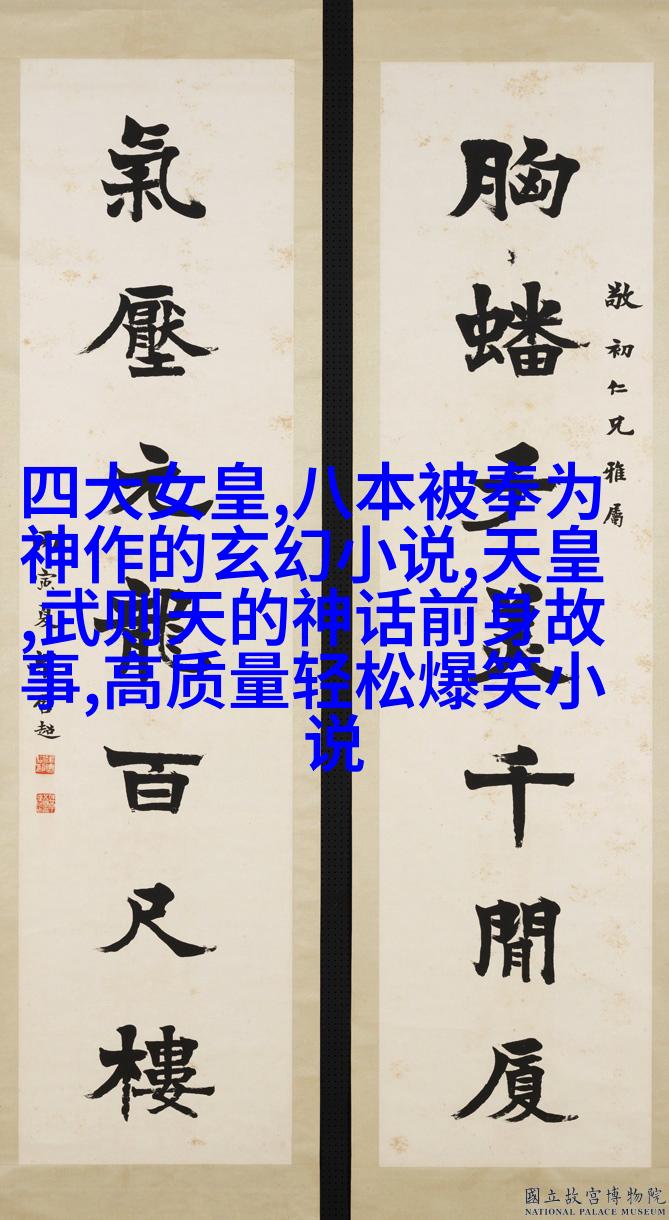 敬初仁兄雅屬
胸蟠子美千間厦
氣壓元龍百尺樓
四大女皇,八本被奉为
神作的玄幻小说,天皇
,武则天的神话前身故
事,高质量轻松爆笑小
说
國立故宮博物院
NATIONAL PALACE MUSEUM